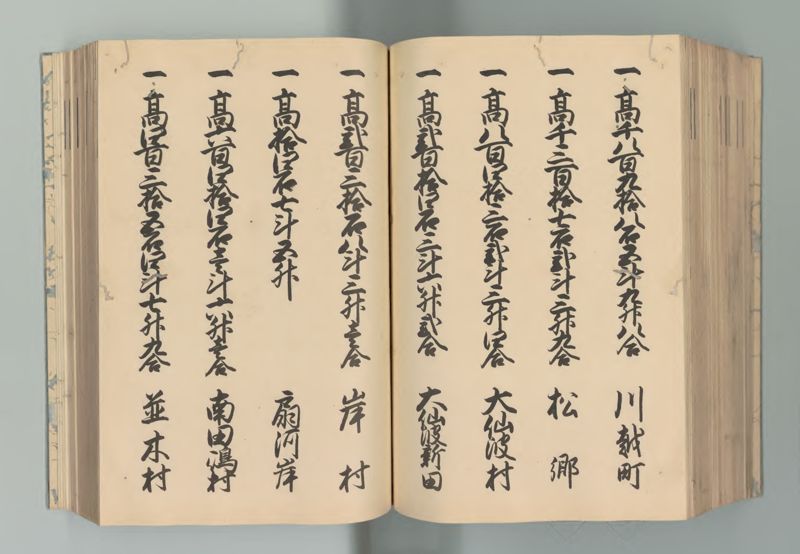 一高千八百九拾八石五斗九升八合 川越町
一高千三百拾七石弐斗三升九合 松郷
一高八百四拾三石弐斗三升四合 大仙波村
一高弐百拾四石三斗六升弐合 大仙波新田
一高弐百三拾石八斗三升壱合 岸村
一高拾四石七斗五升 扇河岸
一高六百四拾四石壱斗六升壱合 南田嶋村
一高四百三拾五石四斗七升九合 並木村